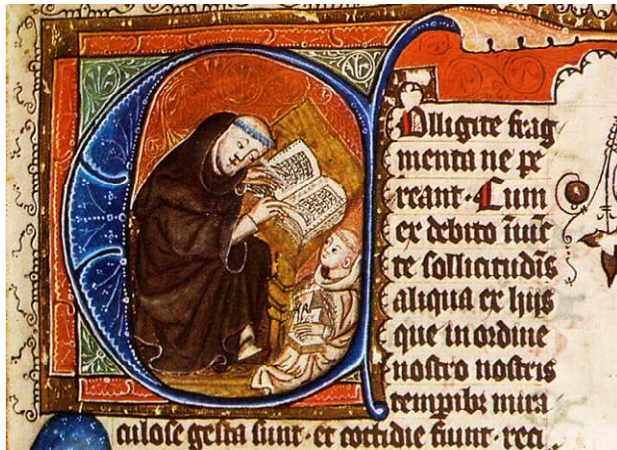 Colligite frag
menta ne pe
reant · Cum
ex debito īiūc
te sollicitudīs
aliqua ex hijs
que in ordine
nostro nostris
temꝑibꝫ mira
culose gesta sunt · et cottidie fiunt · reci